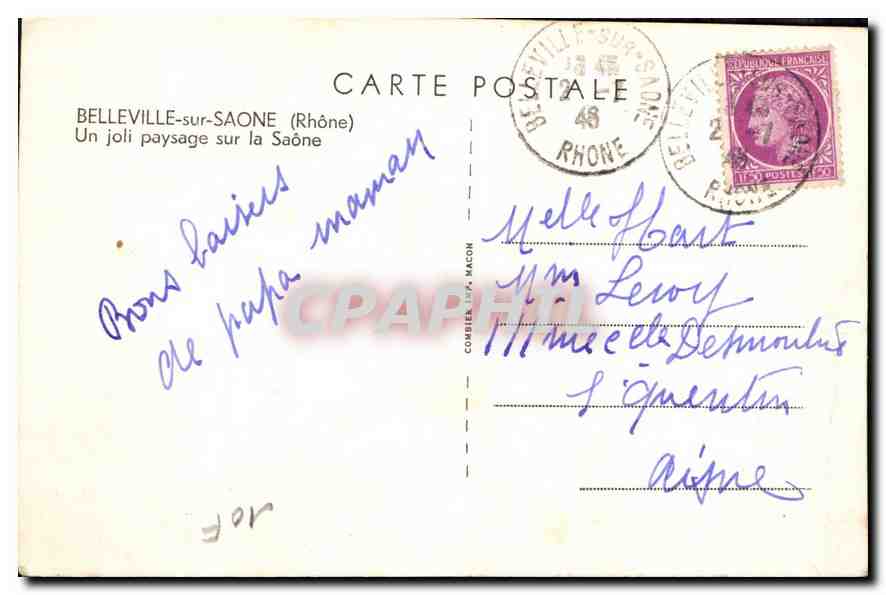 CARTE POSTALE
BELLEVILLE-sur-SAONE (Rhône)
Un joli paysage sur la Saône
Bons baisers
de papa maman
10F
COMBIER IMP. MACON
CPAPHIL
BELLEVILLE-SUR-SAONE
18 45
2 -1
46
RHONE
RÉPUBLIQUE FRANÇAISE
1F50 POSTES 1F50
BELLEVILLE-SUR-SAONE
RHONE
Melle
Mm Leroy
rue Clle Desmoulins
St Quentin
Aisne